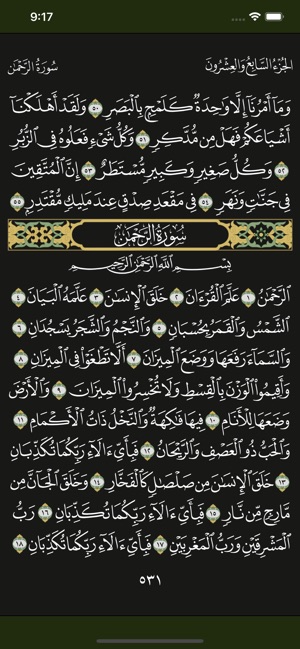 9:17
سُورَةُ الرَّحْمَٰن الجُزْءُ السَّابِعُ وَالعِشْرُونَ
وَمَآ أَمْرُنَآ إِلَّا وَٰحِدَةٌ كَلَمْحٍۭ بِٱلْبَصَرِ ٥٠ وَلَقَدْ أَهْلَكْنَآ
أَشْيَاعَكُمْ فَهَلْ مِن مُّدَّكِرٍ ٥١ وَكُلُّ شَىْءٍ فَعَلُوهُ فِى ٱلزُّبُرِ
٥٢ وَكُلُّ صَغِيرٍ وَكَبِيرٍ مُّسْتَطَرٌ ٥٣ إِنَّ ٱلْمُتَّقِينَ
فِى جَنَّٰتٍ وَنَهَرٍ ٥٤ فِى مَقْعَدِ صِدْقٍ عِندَ مَلِيكٍ مُّقْتَدِرٍۭ ٥٥
سُورَةُ الرَّحْمَٰن
بِسْمِ ٱللَّهِ ٱلرَّحْمَٰنِ ٱلرَّحِيمِ
ٱلرَّحْمَٰنُ ١ عَلَّمَ ٱلْقُرْءَانَ ٢ خَلَقَ ٱلْإِنسَٰنَ ٣ عَلَّمَهُ ٱلْبَيَانَ ٤
ٱلشَّمْسُ وَٱلْقَمَرُ بِحُسْبَانٍ ٥ وَٱلنَّجْمُ وَٱلشَّجَرُ يَسْجُدَانِ ٦
وَٱلسَّمَآءَ رَفَعَهَا وَوَضَعَ ٱلْمِيزَانَ ٧ أَلَّا تَطْغَوْا۟ فِى ٱلْمِيزَانِ ٨
وَأَقِيمُوا۟ ٱلْوَزْنَ بِٱلْقِسْطِ وَلَا تُخْسِرُوا۟ ٱلْمِيزَانَ ٩ وَٱلْأَرْضَ
وَضَعَهَا لِلْأَنَامِ ١٠ فِيهَا فَٰكِهَةٌ وَٱلنَّخْلُ ذَاتُ ٱلْأَكْمَامِ ١١
وَٱلْحَبُّ ذُو ٱلْعَصْفِ وَٱلرَّيْحَانُ ١٢ فَبِأَىِّ ءَالَآءِ رَبِّكُمَا تُكَذِّبَانِ
١٣ خَلَقَ ٱلْإِنسَٰنَ مِن صَلْصَٰلٍ كَٱلْفَخَّارِ ١٤ وَخَلَقَ ٱلْجَآنَّ مِن
مَّارِجٍ مِّن نَّارٍ ١٥ فَبِأَىِّ ءَالَآءِ رَبِّكُمَا تُكَذِّبَانِ ١٦ رَبُّ
ٱلْمَشْرِقَيْنِ وَرَبُّ ٱلْمَغْرِبَيْنِ ١٧ فَبِأَىِّ ءَالَآءِ رَبِّكُمَا تُكَذِّبَانِ ١٨
٥٣١